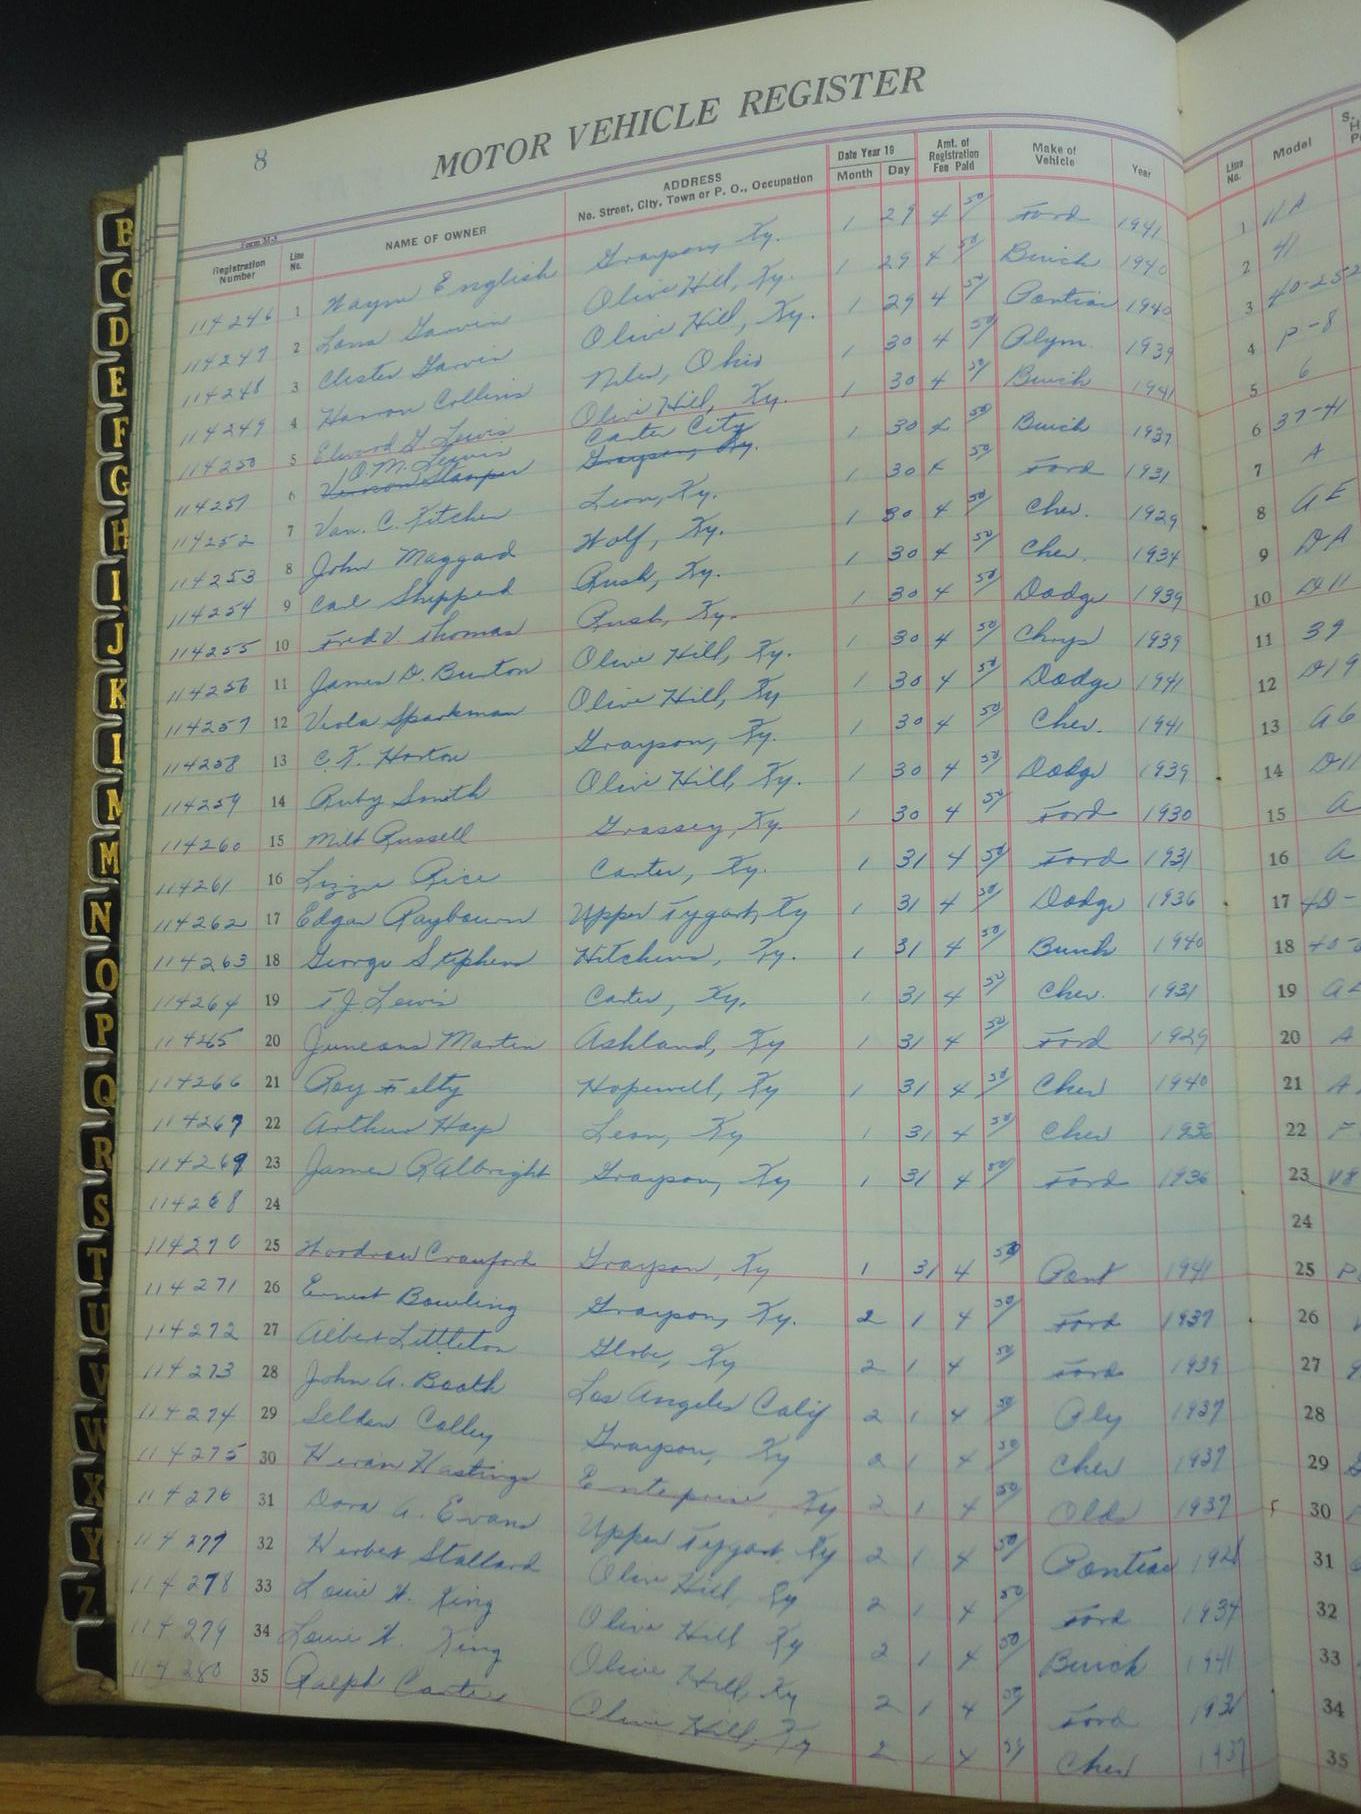 8
MOTOR VEHICLE REGISTER
Form M-3
Registration Number Line No. NAME OF OWNER ADDRESS No. Street, City, Town or P. O., Occupation Date Year 19 Month Day Amt. of Registration Fee Paid Make of Vehicle Year Line No. Model
114246 1 Wayne English Grayson, Ky. 1 29 4 50 Ford 1941 1 11A
114247 2 Lana Garvin Olive Hill, Ky. 1 29 4 50 Buick 1940 2 41
114248 3 Chester Garvin Olive Hill, Ky. 1 29 4 50 Pontiac 1940 3 40-25
114249 4 Collins Niles, Ohio 1 30 4 50 Plym. 1939 4 P-8
114250 5 Elwood G Lewis Olive Hill, Ky. 1 30 4 50 Buick 1941 5 6
114251 6 O.M. Lewis Vernon Stamper Carter City Grayson, Ky. 1 30 4 50 Buick 1937 6 37-41
114252 7 Van. C. Kitchen Leon, Ky. 1 30 4 50 Ford 1931 7 A
114253 8 John Maggard Wolf, Ky. 1 30 4 50 Chev. 1929 8 AE
114254 9 Carl Shepperd Rush, Ky. 1 30 4 50 Chev. 1934 9 DA
114255 10 Fred V Thomas Rush, Ky. 1 30 4 50 Dodge 1939 10 D11
114256 11 James D. Burton Olive Hill, Ky. 1 30 4 50 Chrys 1939 11 39
114257 12 Viola Sparkman Olive Hill, Ky 1 30 4 50 Dodge 1941 12 D19
114258 13 C.K. Horton Grayson, Ky. 1 30 4 50 Chev. 1941 13 A6
114259 14 Ruby Smith Olive Hill, Ky. 1 30 4 50 Dodge 1939 14 D11
114260 15 Milt Russell Grassey, Ky. 1 30 4 50 Ford 1930 15 A
114261 16 Lizzie Rice Carter, Ky. 1 31 4 50 Ford 1931 16 A
114262 17 Edgar Raybourn Upper Tygart, Ky 1 31 4 50 Dodge 1936 17
114263 18 George Stephens Hitchins, Ky. 1 31 4 50 Buick 1940 18
114264 19 T J Lewis Carter, Ky. 1 31 4 50 Chev. 1931 19
114265 20 Martin Ashland, Ky 1 31 4 50 Ford 1929 20 A
114266 21 Roy Felty Hopewell, Ky 1 31 4 50 Chev 1940 21 A
114267 22 Arthur Hays Leon, Ky 1 31 4 50 Chev 1936 22 F
114269 23 James R Albright Grayson, Ky 1 31 4 50 Ford 1936 23 V8
114268 24 24
114270 25 Woodrow Crawford Grayson, Ky 1 31 4 50 Pont 1941 25
114271 26 Ernest Bowling Grayson, Ky. 2 1 4 50 Ford 1937 26
114272 27 Albert Littleton Globe, Ky 2 1 4 50 Ford 1939 27
114273 28 John A. Booth Los Angeles Calif 2 1 4 50 Ply 1937 28
114274 29 Selden Colley Grayson, Ky 2 1 4 50 Chev 1937 29
114275 30 Hiram Hastings Enterprise, Ky 2 1 4 50 Olds 1937 30
114276 31 Dora A. Evans Upper Tygart, Ky 2 1 4 50 Pontiac 1928 31
114277 32 Herbert Stallard Olive Hill, Ky 2 1 4 50 Ford 1934 32
114278 33 Louie W. King Olive Hill Ky 2 1 4 50 Buick 1941 33
114279 34 Louie W. King Olive Hill, Ky 2 1 4 50 Ford 1936 34
114280 35 Ralph Carter Olive Hill, Ky 2 1 4 50 Chev 1937 35
B
C
D
E
F
G
H
I
J
K
M
N
O
P
Q
R
S
T
U
V
W
X
Y
Z